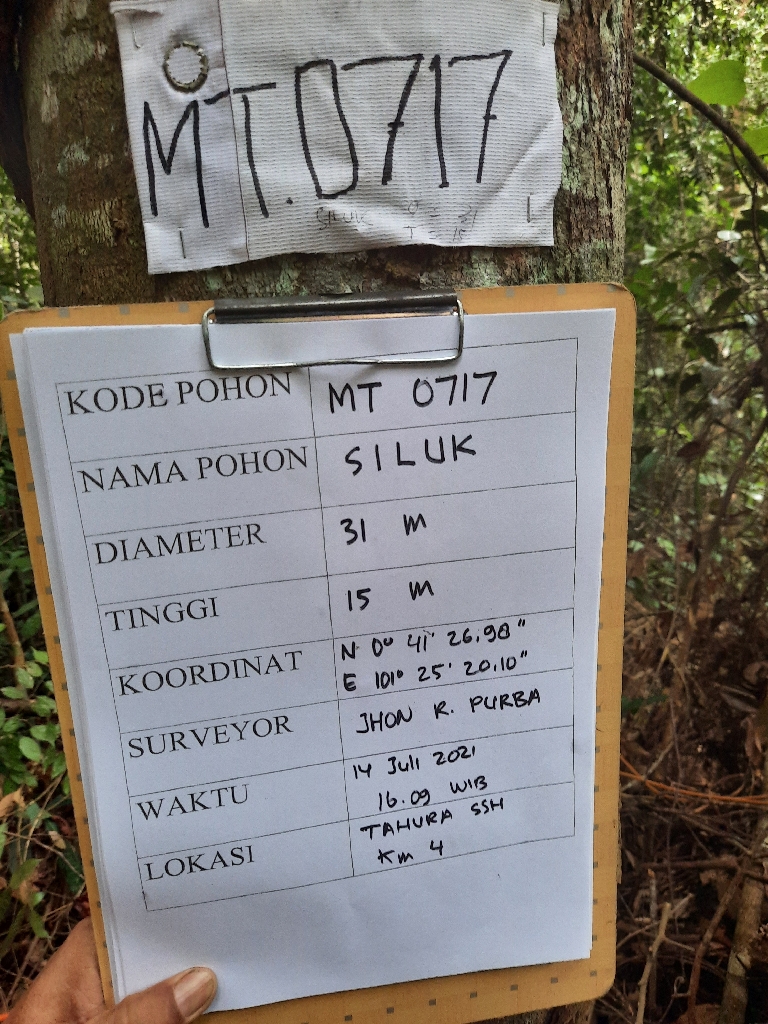 MT.0717
SILUK
KODE POHON MT 0717
NAMA POHON SILUK
DIAMETER 31 m
TINGGI 15 m
KOORDINAT N 0° 41' 26.98"
E 101° 25' 20.10"
SURVEYOR JHON R. PURBA
WAKTU 14 Juli 2021
16.09 WIB
LOKASI TAHURA SSH
Km 4